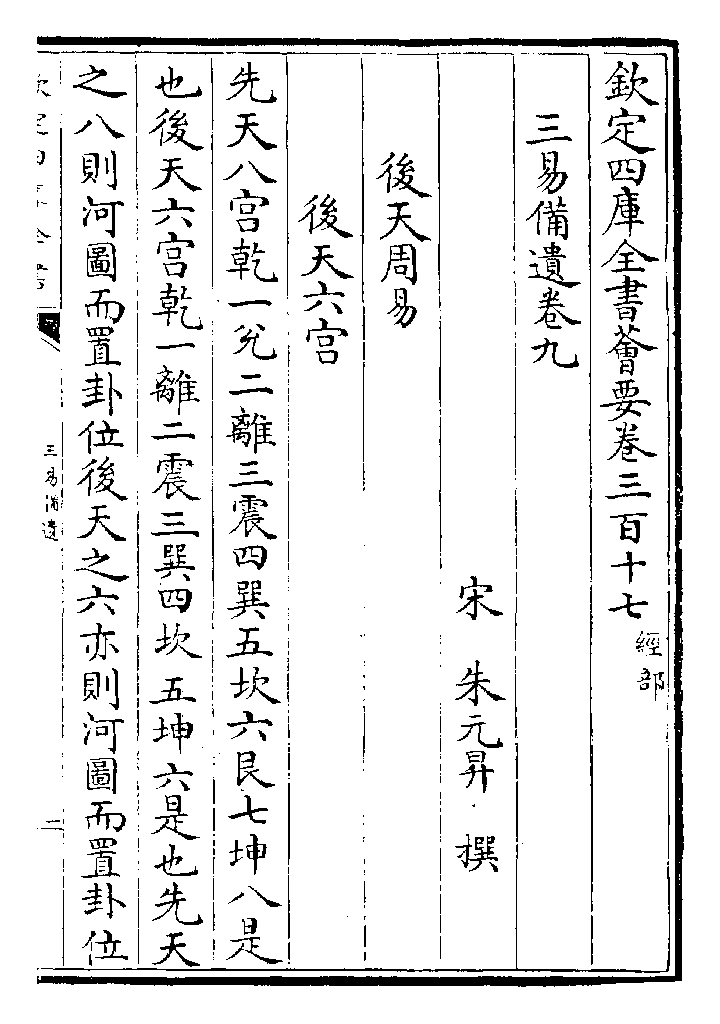 欽定四庫全書薈要卷三百十七 經部
三易備遺卷九
宋 朱元昇 撰
後天周易
後天六宫
先天八宫乾一兊二離三震四巽五坎六艮七坤八是
也後天六宫乾一離二震三巽四坎五坤六是也先天
之八則河圖而置卦位後天之六亦則河圖而置卦位
三易備遺